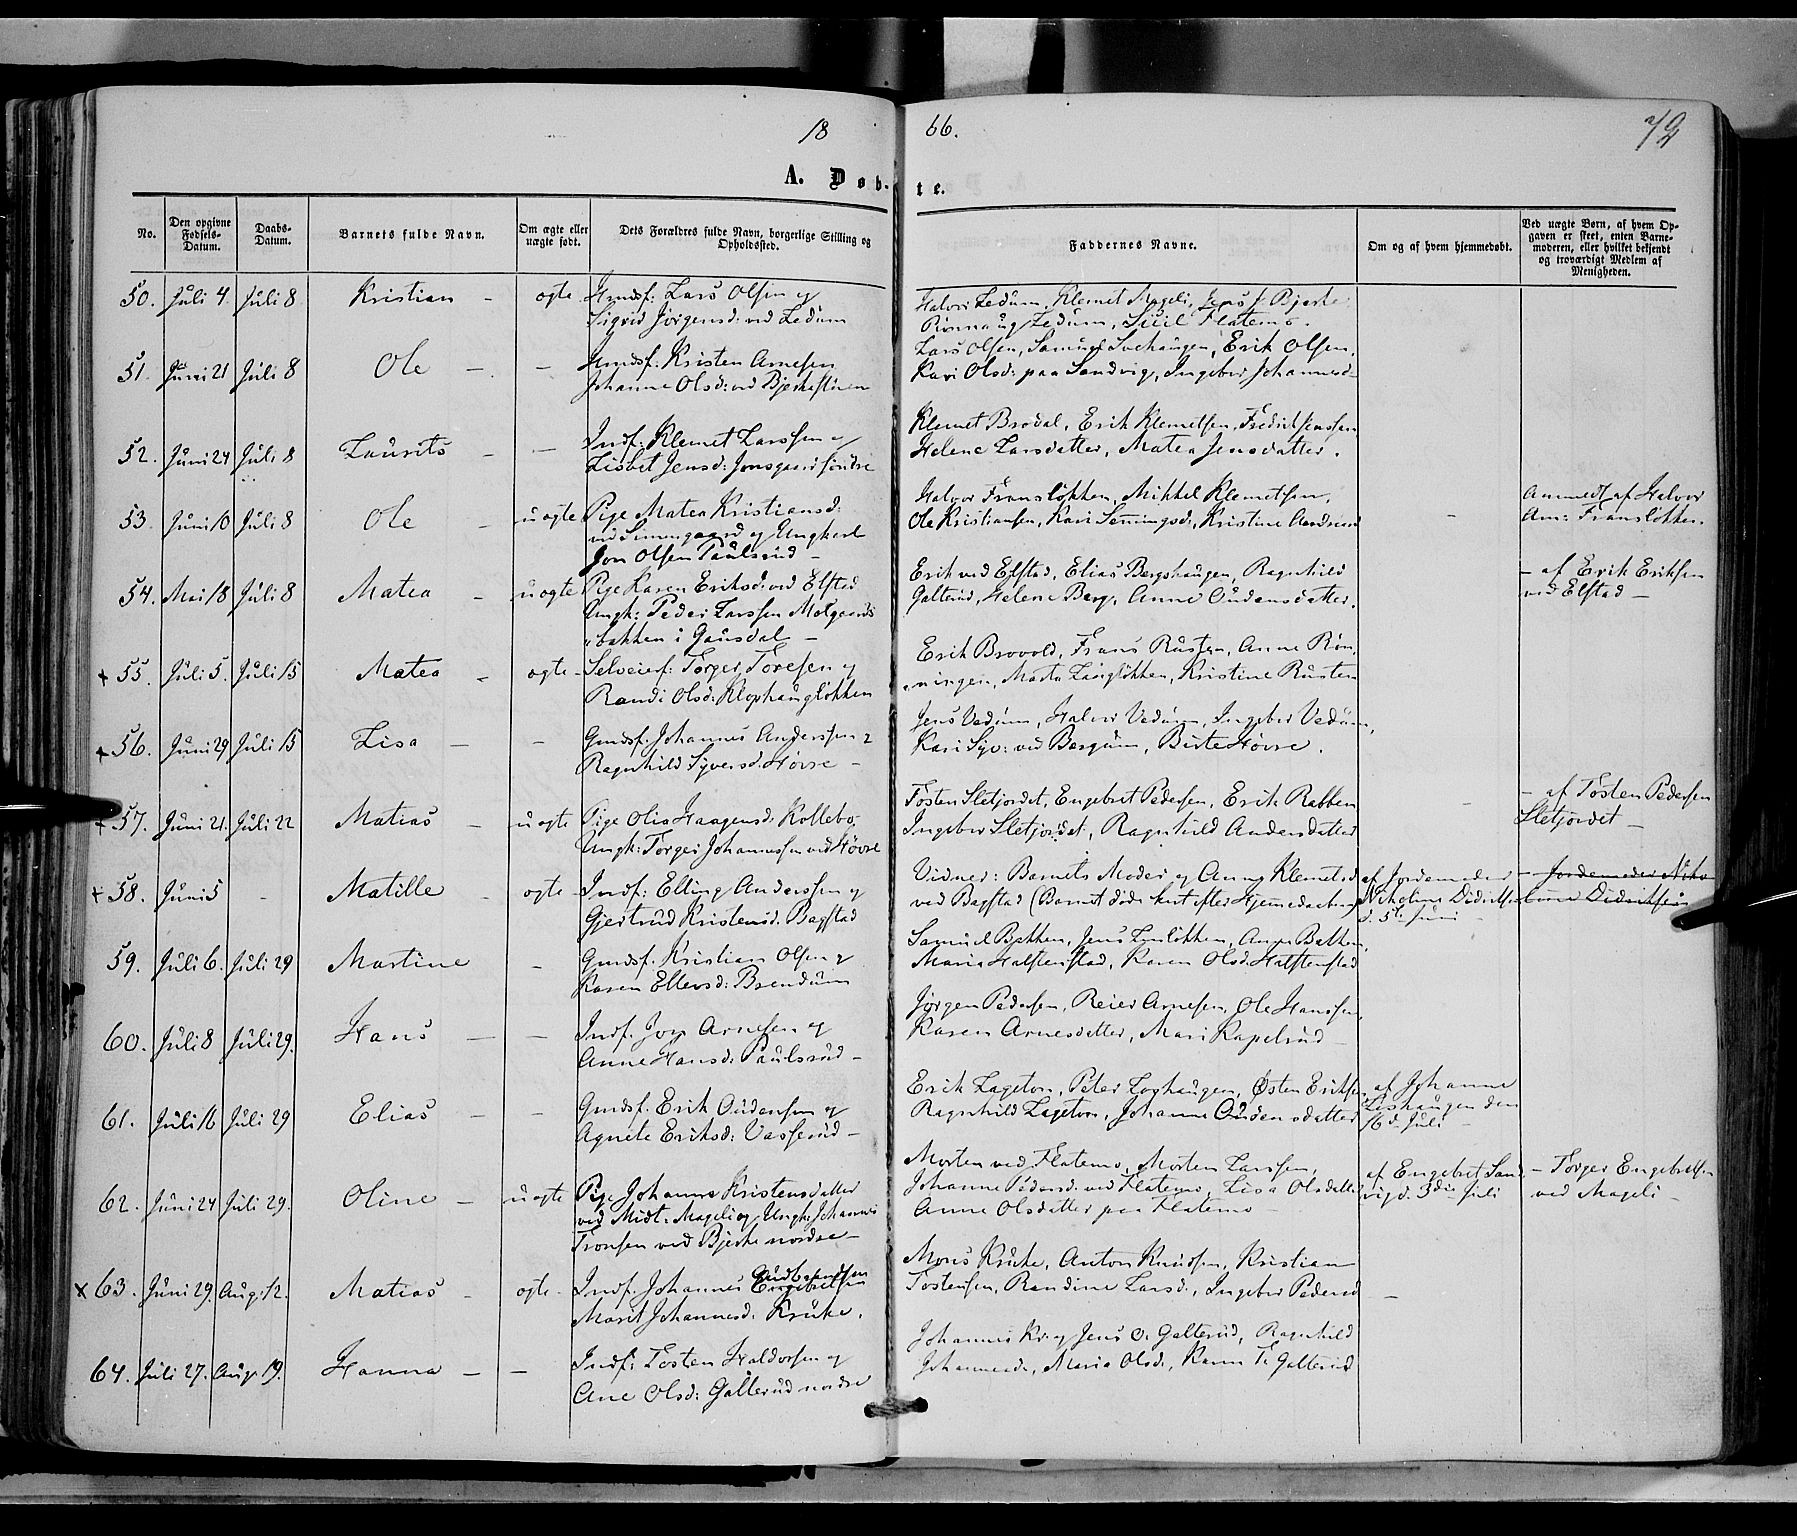 18 66. 72
A. Døb- te.
No. Den opgivne Fødsels-Datum. Daabs-Datum. Barnets fulde Navn. Om ægte eller uægte født. Dets Forældres fulde Navn, borgerlige Stilling og Opholdssted. Faddernes Navne. Om og af hvem hjemmedøbt. Ved uægte Børn, af hvem Opgaven er skeet, enten Barnemoderen, eller hvilket bekjendt og troværdigt Medlem af Menigheden.
50. Juli 4. Juli 8 Kristian - ægte Gmdsf: Lars Olsen og
Sigrid Jørgensd: ved Zedum
Halvor Zedum, Klemet Mageli, Jens J. Bjerke
Rønnaug Zedum, Sicil Flatemo.
51. Juni 21 Juli 8 Ole - - Gmdsf: Kristen Arnesen
Johanne Olsd: ved Bjerkestuen
Lars Olsen, Samuel Svehaugen, Erik Olsen,
Kari Olsd: paa Sandvig, Ingebor Johannesd-
52. Juni 24 Juli 8 Laurits - - Indf: Klemet Larssen og
Lisbet Jensd: Jonsgaard søndre
Klemet Brodal, Erik Klemetsen, Fredrik Jenssen
Helene Larsdatter, Matea Jensdatter.
53. Juni 10 Juli 8 Ole - uægte Pige Matea Kristiansd:
og Ungkarl
Jon Olsen Paulsrud -
Halvor Fransløkken, Mikkel Klemetsen,
Ole Kristiansen, Kari Semmingsd:, Kristine
Anmeldt af Halvor
Fransløkken.
54. Mai 18 Juli 8 Matea - uægte Pige Karen Eriksd: ved Elstad
Ungk: Peder Larssen
bakken i Gausdal -
Erik ved Elstad, Elias Bergshaugen, Ragnhild
Galterud, Helene Berg, Anne Oudensdatter.
- af Erik Eriksen
ved Elstad -
+ 55. Juli 5. Juli 15 Matea - ægte - Selveierf: Torger Toresen og
Randi Olsd: Klophaugløkken
Erik Brovold, Frans Rusten, Anne Røn-
ningen, Marta Langløkken, Kristine Rusten
+ 56. Juni 29 Juli 15 Lisa - - Gmdsf: Johannes Anderssen og
Ragnhild Syversd: Høvre -
Jens Vedum, Halvor Vedum, Ingebor Vedum,
Kari Syv: ved Bergum, Birte Høvre.
+ 57. Juni 21. Juli 22 Matias - uægte Pige Olia Haagensd: Kollebo,
Ungk: Torger Johannessen ved Høvre
Tosten Sletjordet, Engebret Pedersen, Erik Rabben
Ingebor Sletjordet, Ragnhild Andersdatter
- af Tosten Pedersen
Sletjordet -
+ 58. Juni 5 - Matille - ægte - Indf: Elling Anderssen og
Gjertrud Kristensd: Bagstad
Vidner: Barnets Moder og Anne Klemetsd
ved Bagstad (Barnet døde kort efter Hjemmedaaben)
af Jordemoder
Nikoline Didriksen
d. 5te Juni -
- Jordemoder Niko
line Didriksen
59. Juli 6. Juli 29 Martine - Gmdsf: Kristian Olsen og
Karen Ellevsd: Brendum
Samuel Bakken, Jens Lonløkken, Anne Bakken
Maria Halstenstad, Karen Olsd: Halstenstad
60. Juli 8 Juli 29. Hans - - Indf: Jon Arnesen og
Anne Hansd: Paulsrud -
Jørgen Pedersen, Reier Arnesen, Ole Hanssen,
Karen Arnesdatter, Mari Kapelrud -
61. Juli 16 Juli 29 Elias - - Gmdsf: Erik Oudensen og
Agnete Eriksd: Vasserud -
Erik Lageton, Peter Loghaugen, Østen Eriksen,
Ragnhild Lageton, Johanne Oudensdatter
af Johanne
Loshaugen den
16de Juli -
62. Juni 24 Juli 29. Oline - uægte Pige Johanne Kristensdatter
ved Midt: Mageli og Ungk: Johannes
Tronsen ved Bjerke nordre -
Morten ved Flatemo, Morten Larssen,
Johanne Pedersd: ved Flatemo, Lisa Olsdatter
Anne Olsdatter paa Flatemo -
af Engebret Sand
vig d. 3die Juli
- Torger Engebretsen
ved Mageli -
x 63. Juni 29. Aug: 12. Matias - ægte - Indf: Johannes Engebretsen Gudbrandsen
Marit Johannesd: Kruke.
Mons Kruke, Anton Knudsen, Kristian
Tostensen, Randine Larsd:, Ingebor Pedersd -
64. Juli 27. Aug: 19. Hanna - - Indf: Tosten Haldorsen og
Ane Olsd: Galterud nordre
Johannes Kr. og Jens O. Galterud, Ragnhild
Johannesd:, Maria Olsd:, Karen T. Galterud